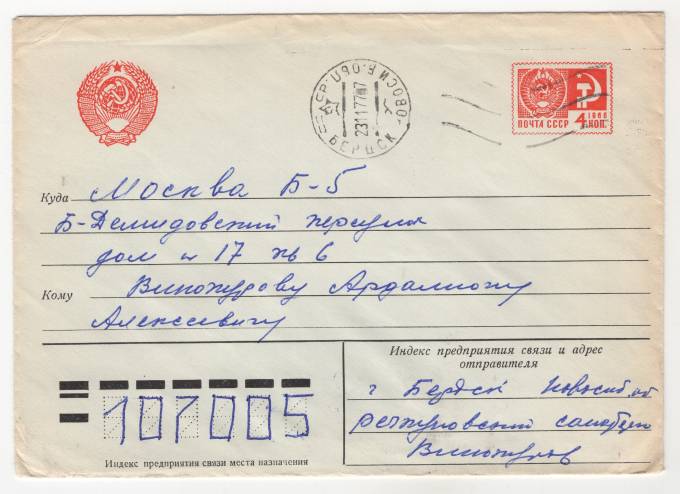 БЕРДСК НОВОСИБ.ОБЛ.
231177 07
ПОЧТА СССР
1966
4 КОП.
Куда Москва Б-5
Б-Демидовский переулок
дом № 17 кв 6
Кому Винокурову Ардалиону
Алексеевичу
Индекс предприятия связи и адрес
отправителя
г Бердск Новосиб. об
санаторий
Винокуров
107005
Индекс предприятия связи места назначения